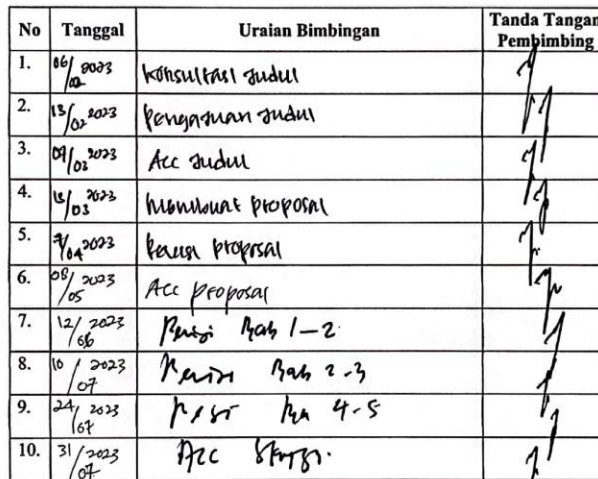 No Tanggal Uraian Bimbingan Tanda Tangan Pembimbing
1. 06/02 2023 Konsultasi Judul
2. 13/02 2023 Pengajuan Judul
3. 09/03 2023 Acc Judul
4. 13/03 2023 Membuat Proposal
5. 7/04 2023 Revisi Proposal
6. 08/05 2023 Acc Proposal
7. 12/06 2023 Revisi Bab 1-2
8. 10/07 2023 Revisi Bab 2-3
9. 24/07 2023 4-5
10. 31/07 2023 Acc Skripsi.